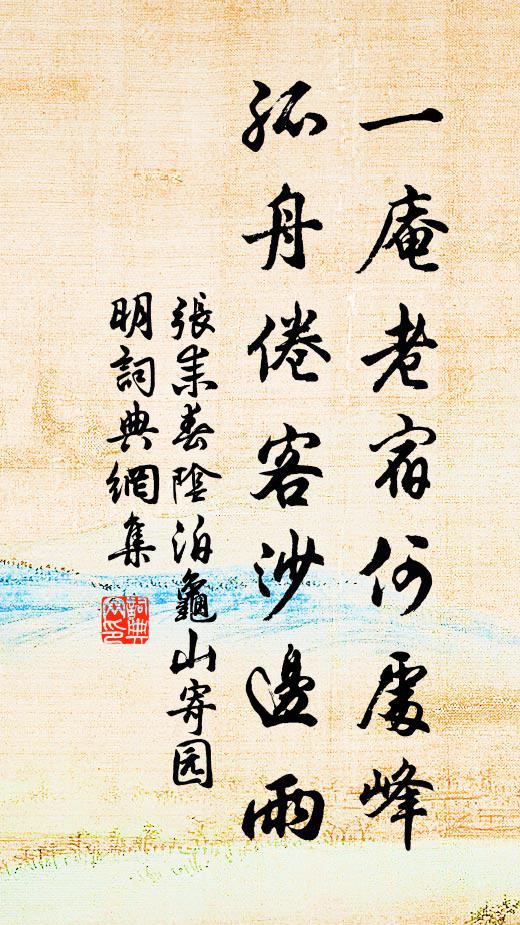 一庵老宿何處峰
孤舟倦客沙邊雨
張耒春陰泊龜山寄园
明詞典網集
詞典